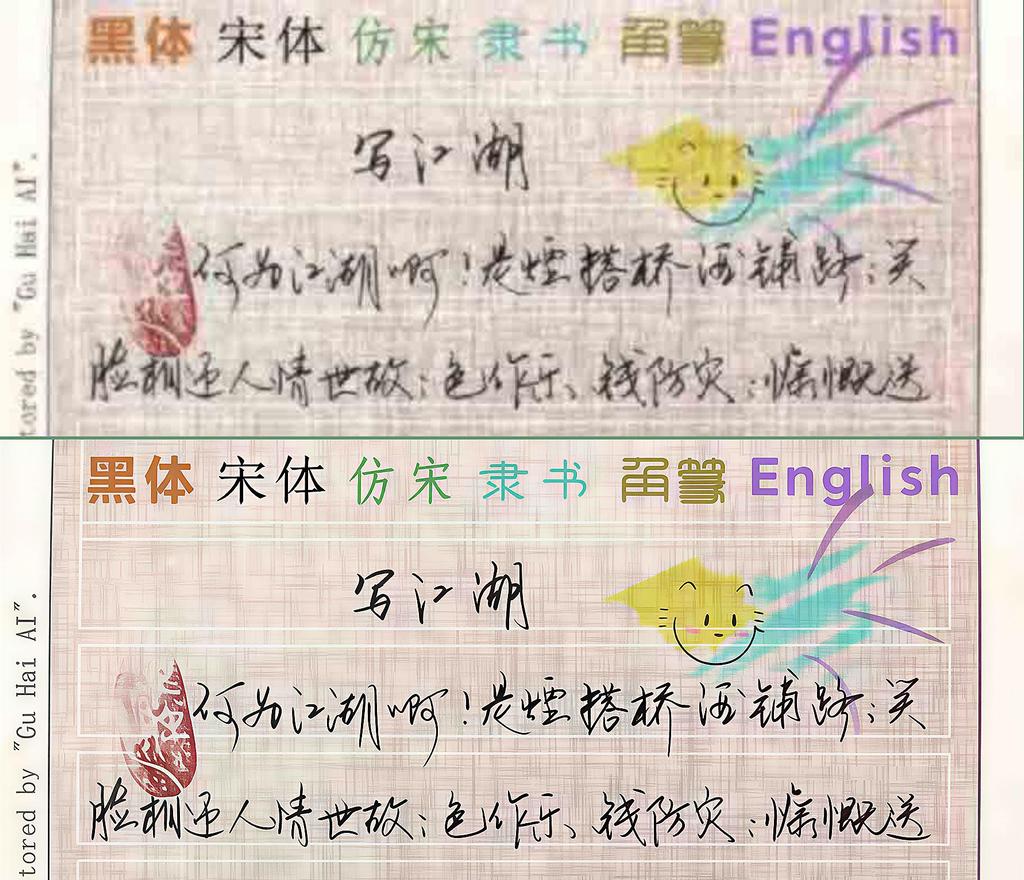 黑体 宋体 仿宋 隶书 English
写江湖
何为江湖啊！是烟搭桥 酒铺路；笑
脸相迎人情世故；色作乐、钱防灾；慷慨送
tored by "Gu Hai AI".
黑体 宋体 仿宋 隶书 English
写江湖
何为江湖啊！是烟搭桥 酒铺路；笑
脸相迎人情世故；色作乐、钱防灾；慷慨送
tored by "Gu Hai AI".